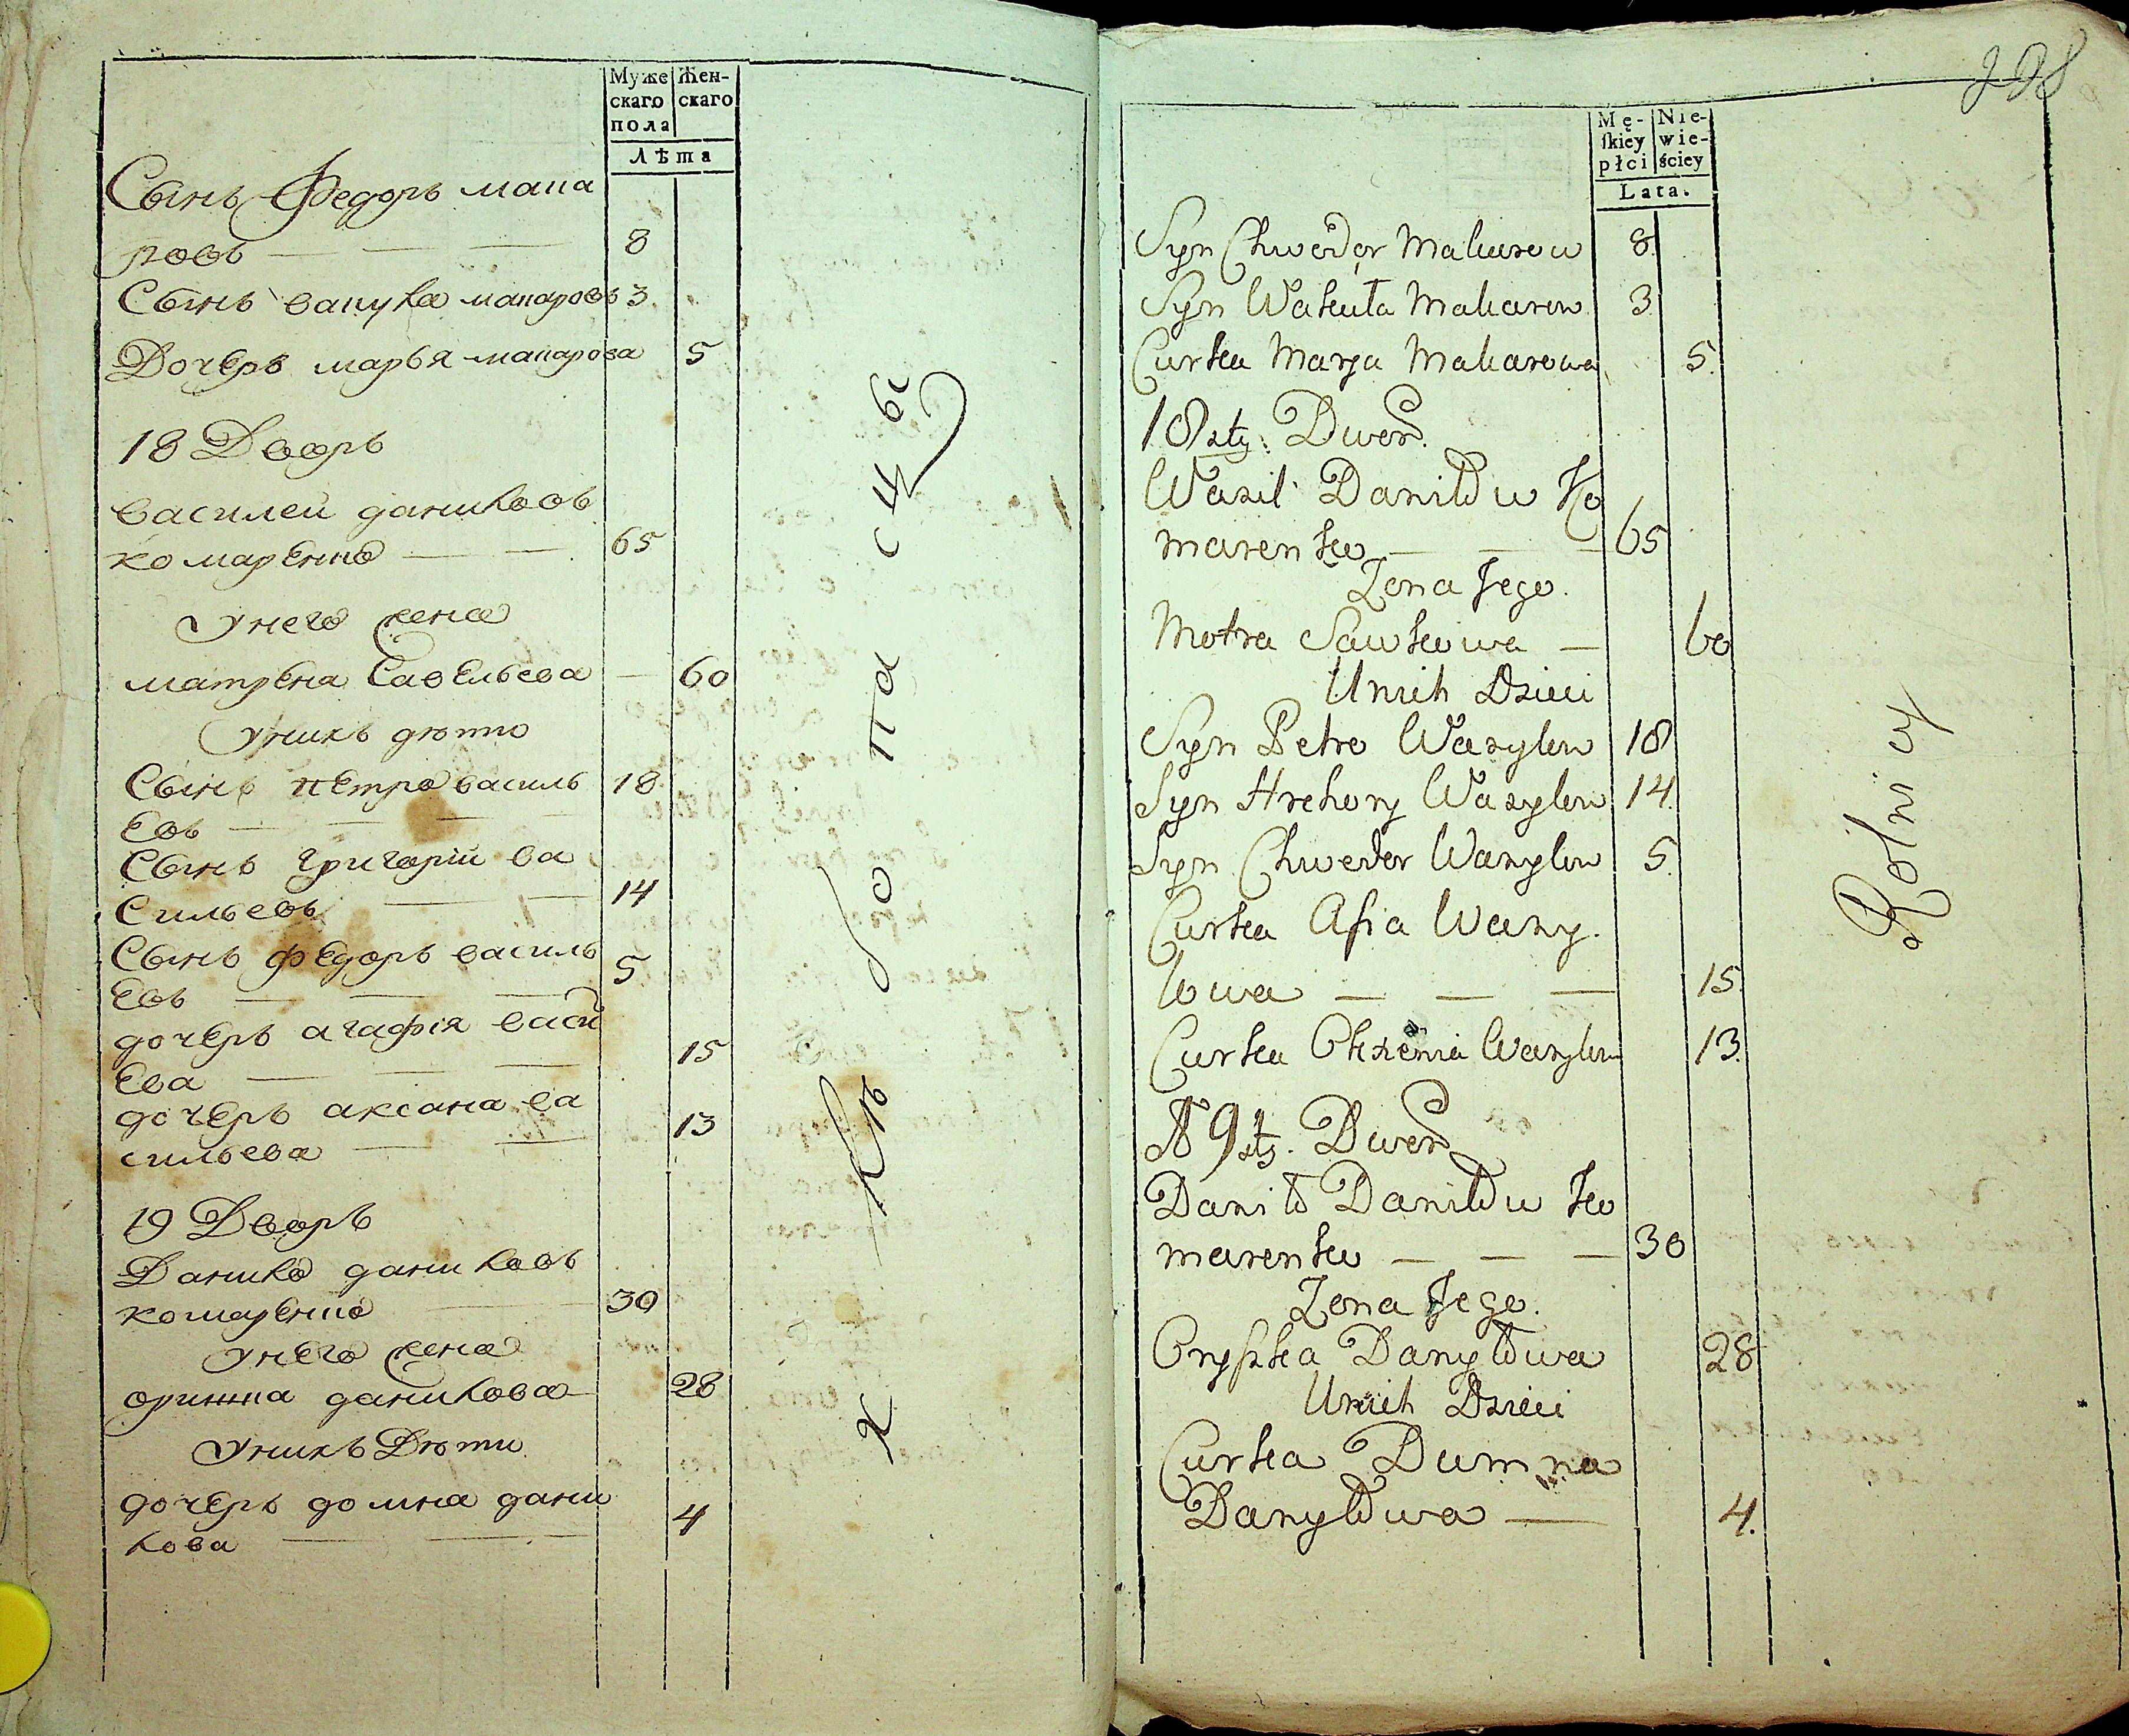 Муже
скаго
пола
Жен-
скаго
Лѣта
Сынъ Федоръ мака
ровъ — — 8
Сынъ вакула макаровъ 3
Дочерь марья макарова 5
18 Дворъ
василей даниловъ
комаренко — — 65
Унего жена
матрена Савельева — 60
Унихъ дѣти
Сынъ петро василь 18
евъ — — — —
Сынъ григорiй ва
сильевъ — — 14
Сынъ федоръ василь 5
евъ — — —
дочерь агафiя васи
ева — — — 15
дочерь аксана ва 13
сильева — —
19 Дворъ
Данило даниловъ
комаренко — 30
Унего жена
оришка данилова 28
Унихъ Дѣти
дочерь домна дани 4
лова — —
хлѣбопашцы
228
Mę-
skiey
płci
Nie-
wie-
ściey
Lata.
Syn Chwedor Makarow 8.
Syn Wakuła Makarow 3
Curka Marja Makarowa 5.
18sty: Dwor.
Wasil Daniłow Ko
marenko — — — 65
Zona Jego.
Motra Sawkowa — 60
Unich Dzieci
Syn Petro Wasylow 18
Syn Hrehory Wasylow 14.
Syn Chwedor Wasylow 5.
Curka Afia Wasy.
lowa — — — 15.
Curka Oxenia Wasylow 13.
N 19sty. Dwor
Daniło Daniłow Ko
marenko — — — 30
Zona Jego.
Oryszka Danyłowa 28
Unich Dzieci
Curka Dumna
Danyłowa — 4.
Rolnicy